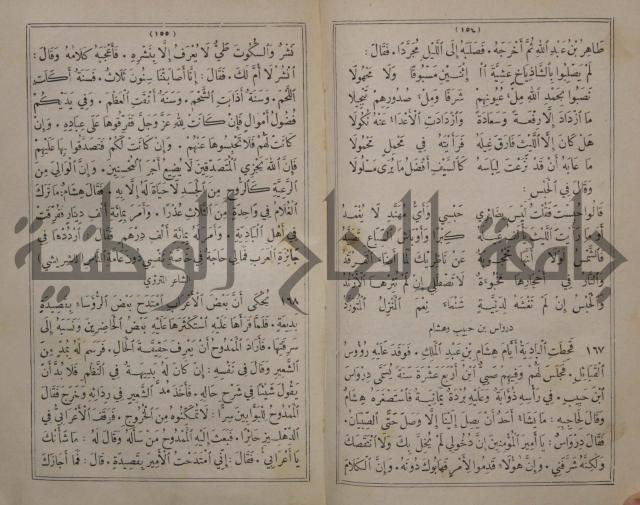 (١٥٤)
طَاهِرُ بْنُ عَبْدِ اللهِ ثُمَّ أَخْرَجَهُ . فَصَلَبَهُ إِلَى اللَّيْلِ مُجَرَّدًا . فَقَالَ :
لَمْ يَصْلِبُوا بِالشَّاذِيَاخِ عَشِيَّةَ الْ إِثْنَيْنِ مَسْبُوقًا وَلَا مَجْهُولَا
نَصَبُوا بِحَمْدِ اللهِ مِلْءَ عُيُونِهِمْ شَرَفًا وَمِلْءَ صُدُورِهِمْ تَبْجِيلَا
مَا ازْدَادَ إِلَّا رِفْعَةً وَسَعَادَةً وَازْدَادَتِ الْأَعْدَاءُ عَنْهُ نُكُولَا
هَلْ كَانَ إِلَّا اللَّيْثَ فَارَقَ غِيلَهُ فَرَأَيْتَهُ فِي مَحْمِلٍ مَحْمُولَا
مَا عَابَهُ أَنْ قَدْ نُزِعَتْ لِبَاسُهُ كَالسَّيْفِ أَفْضَلُ مَا يُرَى مَسْلُولَا
وَقَالَ فِي الْحَبْسِ :
قَالُوا حُبِسْتَ فَقُلْتُ لَيْسَ بِضَائِرِي حَبْسِي وَأَيُّ مُهَنَّدٍ لَا يُغْمَدُ
أَوَمَا رَأَيْتَ اللَّيْثَ كِبْرًا وَأَوْبَاشُ السِّبَاعِ
فَالشَّمْسُ لَوْلَا أَنَّهَا عَنْ نَاظِرَيْكَ
وَالنَّارُ فِي أَحْجَارِهَا مَخْبُوءَةٌ لَا تُصْطَلَى إِنْ لَمْ تُثِرْهَا الْأَزْنُدُ
وَالْحَبْسُ إِنْ لَمْ تَغْشَهُ لِدَنِيَّةٍ شَنْعَاءَ نِعْمَ الْمَنْزِلُ الْمُتَوَرَّدُ
درواس بن حبيب وهشام
١٦٧ قَحِطَتِ الْبَادِيَةُ أَيَّامَ هِشَامِ بْنِ عَبْدِ الْمَلِكِ . فَوَفَدَ عَلَيْهِ رُؤُوسُ
الْقَبَائِلِ . فَجَلَسَ لَهُمْ وَفِيهِمْ صَبِيٌّ ابْنُ أَرْبَعَ عَشْرَةَ سَنَةً يُسَمَّى دِرْوَاسَ
ابْنَ حَبِيبٍ . فِي رَأْسِهِ ذُؤَابَةٌ وَعَلَيْهِ بُرْدَةٌ يَمَانِيَّةٌ فَاسْتَصْغَرَهُ هِشَامٌ
وَقَالَ لِحَاجِبِهِ : مَا يَشَاءُ أَحَدٌ أَنْ يَصِلَ إِلَيْنَا إِلَّا وَصَلَ حَتَّى الصِّبْيَانُ .
فَقَالَ دِرْوَاسٌ : يَا أَمِيرَ الْمُؤْمِنِينَ إِنَّ دُخُولِي لَمْ يُخِلَّ بِكَ وَلَا انْتَقَصَكَ
وَلَكِنَّهُ شَرَّفَنِي . وَإِنَّ هٰؤُلَاءِ قَدِمُوا لِأَمْرٍ فَهَابُوكَ دُونَهُ . وَإِنَّ الْكَلَامَ
(١٥٥)
نَشْرٌ وَالسُّكُوتَ طَيٌّ لَا يُعْرَفُ إِلَّا بِنَشْرِهِ . فَأَعْجَبَهُ كَلَامُهُ وَقَالَ :
انْشُرْ لَا أُمَّ لَكَ . فَقَالَ : إِنَّا أَصَابَتْنَا سِنُونَ ثَلَاثٌ . فَسَنَةٌ أَكَلَتِ
اللَّحْمَ . وَسَنَةٌ أَذَابَتِ الشَّحْمَ . وَسَنَةٌ أَنْقَتِ الْعَظْمَ . وَفِي يَدِكُمْ
فُضُولُ أَمْوَالٍ فَإِنْ كَانَتْ لِلهِ عَزَّ وَجَلَّ فَفَرِّقُوهَا عَلَى عِبَادِهِ . وَإِنْ
كَانَتْ لَهُمْ فَلَا تَحْبِسُوهَا عَنْهُمْ . وَإِنْ كَانَتْ لَكُمْ فَتَصَدَّقُوا بِهَا عَلَيْهِمْ
فَإِنَّ اللهَ يَجْزِي الْمُتَصَدِّقِينَ لَا يُضِيعُ أَجْرَ الْمُحْسِنِينَ . وَإِنَّ الْوَالِيَ مِنَ
الرَّعِيَّةِ كَالرُّوحِ مِنَ الْجَسَدِ لَا حَيَاةَ لَهُ إِلَّا بِهِ . فَقَالَ هِشَامٌ : مَا تَرَكَ
الْغُلَامُ فِي وَاحِدَةٍ مِنَ الثَّلَاثِ عُذْرًا . وَأَمَرَ بِمِائَةِ أَلْفِ دِينَارٍ فَفُرِّقَتْ
فِي أَهْلِ الْبَادِيَةِ . وَأَمَرَ لَهُ بِمِائَةِ أَلْفِ دِرْهَمٍ . فَقَالَ : ارْدُدْهَا فِي
جَائِزَةِ الْعَرَبِ فَمَا لِي حَاجَةٌ فِي خَاصَّةِ نَفْسِي دُونَ عَامَّةِ النَّاسِ (للشريشي)
١٦٨ يُحْكَى أَنَّ بَعْضَ الْأَعْرَابِ امْتَدَحَ بَعْضَ الرُّؤَسَاءِ بِقَصِيدَةٍ
بَدِيعَةٍ . فَلَمَّا قَرَأَهَا عَلَيْهِ اسْتَكْثَرَهَا عَلَيْهِ بَعْضُ الْحَاضِرِينَ وَنَسَبَهُ إِلَى
سَرِقَتِهَا . فَأَرَادَ الْمَمْدُوحُ أَنْ يَعْرِفَ حَقِيقَةَ الْحَالِ . فَرَسَمَ لَهُ بِمُدٍّ مِنَ
الشَّعِيرِ وَقَالَ فِي نَفْسِهِ : إِنْ كَانَ لَهُ بَدِيهَةٌ فِي النَّظْمِ فَلَا بُدَّ أَنْ
يَقُولَ شَيْئًا فِي شَرْحِ حَالِهِ . فَأَخَذَ مُدَّ الشَّعِيرِ فِي رِدَائِهِ وَخَرَجَ فَقَالَ
الْمَمْدُوحُ لِلْبَوَّابِينَ سِرًّا : لَا تُمَكِّنُوهُ مِنَ الْخُرُوجِ . فَوَقَفَ الْأَعْرَابِيُّ فِي
الدِّهْلِيزِ حَائِرًا . فَبَعَثَ إِلَيْهِ الْمَمْدُوحُ مَنْ سَأَلَهُ وَقَالَ لَهُ : مَا شَأْنُكَ
يَا أَعْرَابِيُّ . فَقَالَ : إِنِّي امْتَدَحْتُ الْأَمِيرَ بِقَصِيدَةٍ . قَالَ : فَمَا أَجَازَكَ
جامعة النجاح الوطنية